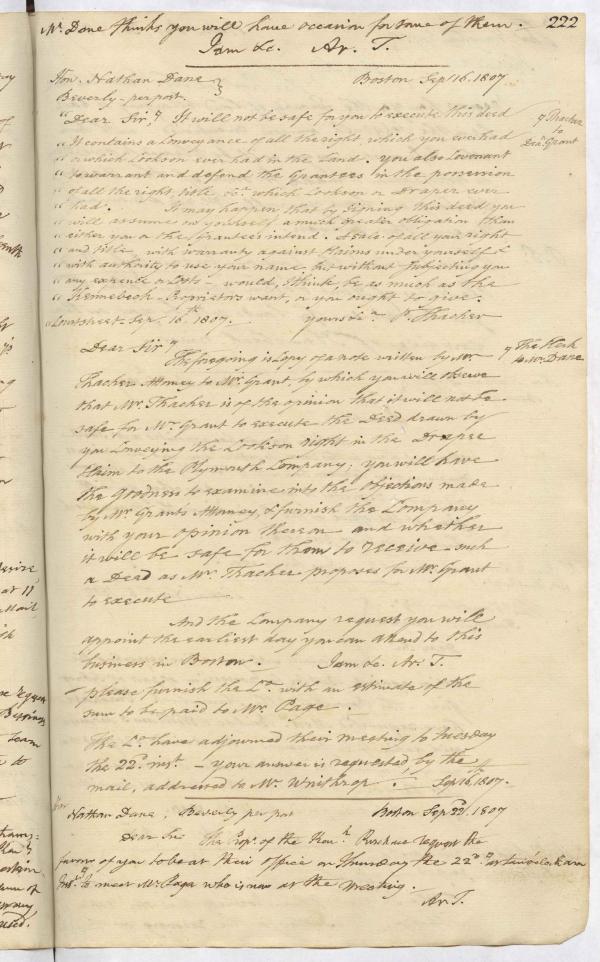 Mr. Dane thinks you will have occasion for some of them. 222
I am &c. Ar. T.
Hon. Nathan Dane } Boston Sep 16. 1807
Beverly - per post.
"Dear Sir, It will not be safe for you to execute this deed
Thacher
to
Grant
"It contains a Conveyance of all the right which you ever had
"or which Cookson ever had in the Land. you also Covenant
"to warrant and defend the Grantees in the possession
"of all the right title &c. which Cookson or Draper ever
"had. It may happen that by signing this deed you
"will assume on yourself a much greater obligation than
"either you or the Grantees intend. A sale of all your right
"and title, with warranty against claims under yourself &
"with authority to use your name, but without subjecting you
"any expence or Costs - would, I think, be as much as the
"Kennebeck - Proprietors want, or you ought to give.
"Courtstreet - Sep. 16th. 1807. yours &c. P. Thacher
Dear Sir
The Clerk
to Mr. Dane
The foregoing is Copy of a note written by Mr.
Thacher Attorney to Mr. Grant, by which you will observe
that Mr. Thacher is of the opinion that it will not be
safe for Mr. Grant to execute the Deed drawn by
you Conveying the Cookson right in the Draper
Claim to the Plymouth Company; you will have
the goodness to examine into the objections made
by Mr. Grants Attorney, & furnish the Company
with your opinion thereon and whether
it will be safe for them to receive such
a Deed as Mr. Thacher proposes for Mr. Grant
to execute
And the Company request you will
appoint the earliest day you can attend to this
business in Boston. I am &c. Ar. T.
please furnish the Co. with an estimate of the
sum to be paid to Mr. Page.
The Co. have adjourned their meeting to tuesday
the 22d. inst. - your answer is requested by the
mail, addressed to Mr. Winthrop. Sep 16th. 1807.
Nathan Dane, Beverly per post Boston Sep 22d. 1807
Dear Sir The Prop. of the Ken. Purchase request the
favor of you to be at their office on Thursday the 22d.
to meet Mr. Page who is now at the meeting.
Ar. T.